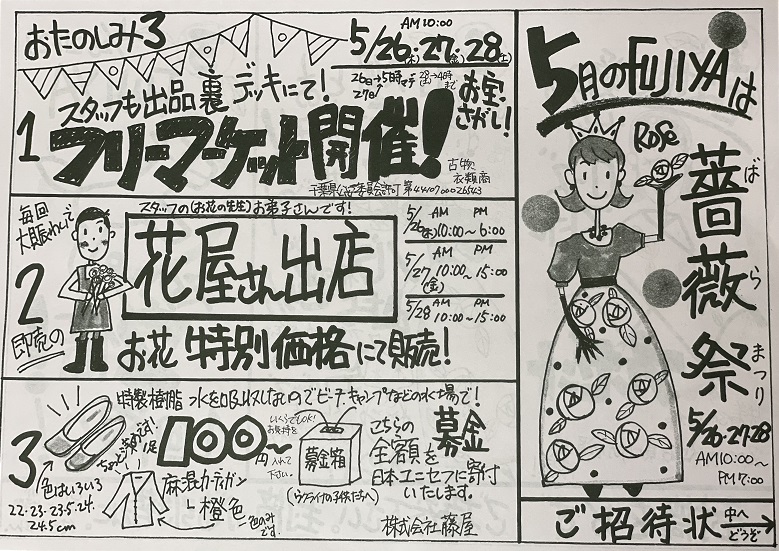 おたのしみ3
AM10:00
5/26(木)・27(金)・28(土)
26日→5時マデ
27日
28(土)→4時まで
1
スタッフも出品 裏デッキにて!
お宝さがし!
フリーマーケット開催!
古物
衣類商
毎回
大賑わいで
2
即売の
スタッフの(お花の先生)お弟子さんです!
花屋さん出店
お花 特別価格にて販売!
AM PM
5/26(木) 10:00〜6:00
AM PM
5/27(金) 10:00〜15:00
AM PM
5/28 10:00〜15:00
3
特製樹脂 水を吸収しないのでビーチ・キャンプなどの水場で!
1足
100円〜
いくらでもOK!
お気持を
入れて
下さい。
募金箱
(ウクライナの子供たちへ)
こちらの募金
全額を
日本ユニセフに寄付
いたします。
色はいろいろ
22・23・23.5・24・
24.5cm
麻混カーディガン
橙色
一色のみ
です。
株式会社 藤屋
5月のFUJIYAは
Rose
薔薇祭
ばらまつり
5/26・27・28
AM10:00〜
PM7:00
ご招待状 中へどうぞ